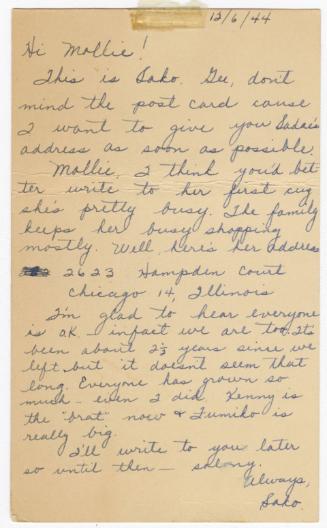 12/6/44
Hi Mollie!
This is Sako. Gee, don't
mind the post card cause
I want to give you Sadae's
address as soon as possible.
Mollie, I think you'd bet-
ter write to her first cuz
she's pretty busy. The family
keeps her busy shopping
mostly. Well, here's her address
2623 Hampden Court
Chicago 14, Illinois
I'm glad to hear everyone
is O.K. infact we are too. Its
been about 2½ years since we
left but it doesn't seem that
long. Everyone has grown so
much - even I did. Kenny is
the "brat" now & Fumiko is
really big.
I'll write to you later
so until then — solong.
Always,
Sako.